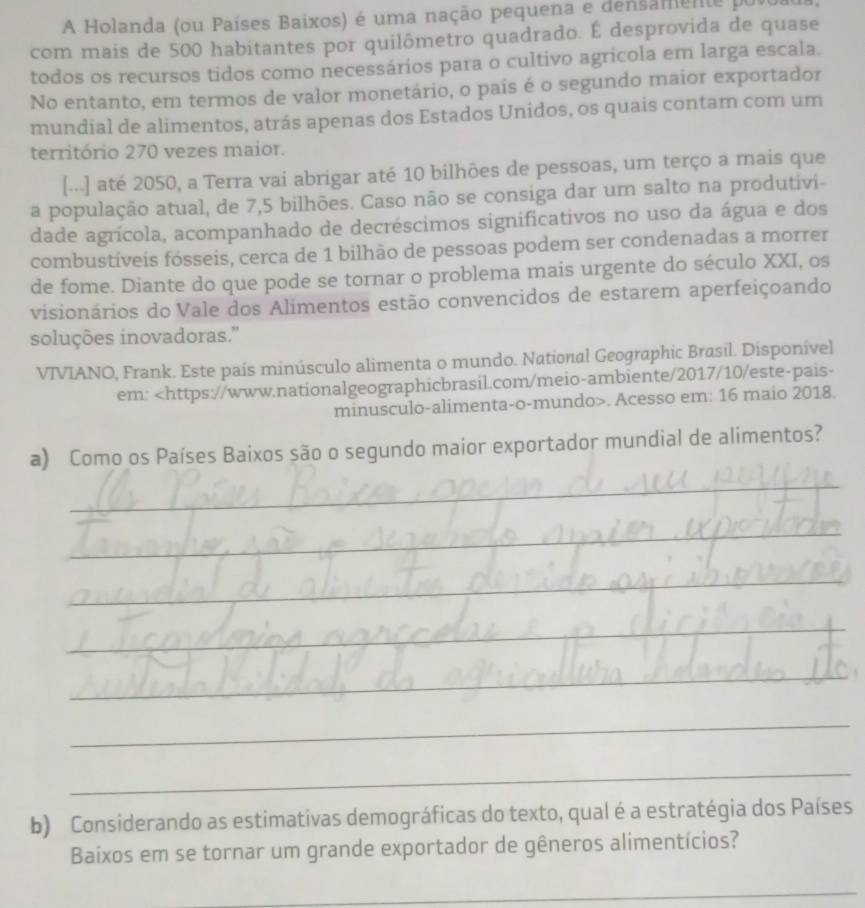 A Holanda (ou Países Baixos) é uma nação pequena e densamente
com mais de 500 habitantes por quilômetro quadrado. É desprovida de quase
todos os recursos tidos como necessários para o cultivo agrícola em larga escala.
No entanto, em termos de valor monetário, o país é o segundo maior exportador
mundial de alimentos, atrás apenas dos Estados Unidos, os quais contam com um
território 270 vezes maior.
[...] até 2050, a Terra vai abrigar até 10 bilhões de pessoas, um terço a mais que
a população atual, de 7,5 bilhões. Caso não se consiga dar um salto na produtivi-
dade agrícola, acompanhado de decréscimos significativos no uso da água e dos
combustíveis fósseis, cerca de 1 bilhão de pessoas podem ser condenadas a morrer
de fome. Diante do que pode se tornar o problema mais urgente do século XXI, os
visionários do Vale dos Alimentos estão convencidos de estarem aperfeiçoando
soluções inovadoras."
VIVIANO, Frank. Este país minúsculo alimenta o mundo. National Geographic Brasil. Disponível
em: <https://www.nationalgeographicbrasil.com/meio-ambiente/2017/10/este-pais-
minusculo-alimenta-o-mundo>. Acesso em: 16 maio 2018.
a) Como os Países Baixos são o segundo maior exportador mundial de alimentos?
Os Países Baixos, apesar de seu pequeno
tamanho, são o segundo maior exportador
mundial de alimentos devido as inovações
e tecnologias agrícolas e a eficiência
sustentabilidade da agricultura holandesa
b) Considerando as estimativas demográficas do texto, qual é a estratégia dos Países
Baixos em se tornar um grande exportador de gêneros alimentícios?